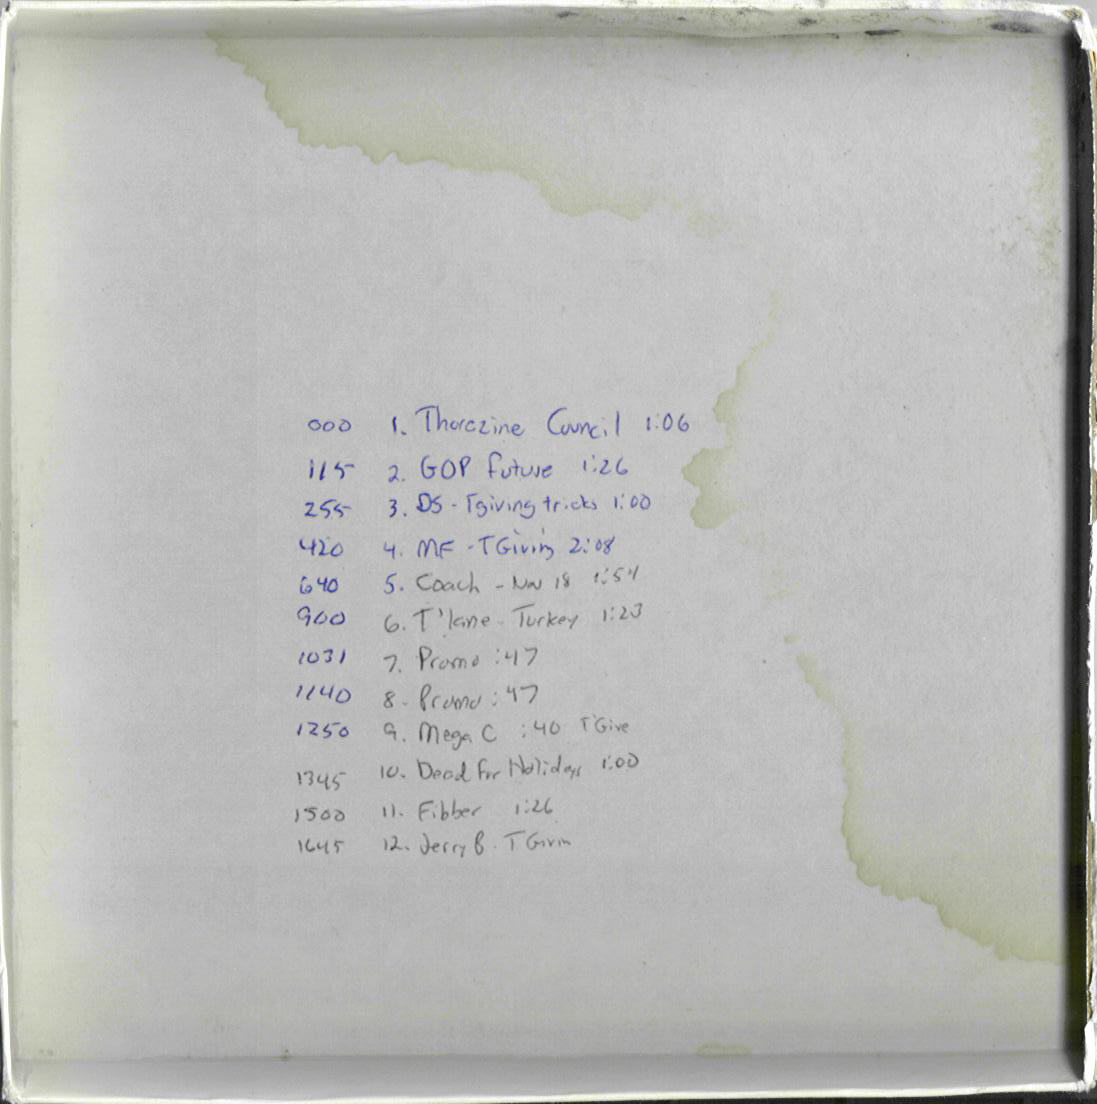 000 1. Thorazine Council 1:06
115 2. GOP future 1:26
255 3. DS - Tgiving tricks 1:00
420 4. MF - TGivin 2:08
640 5. Coach - Nov 18 1:54
900 6. T'lane - Turkey 1:23
1031 7. Promo :47
1140 8. Promo :47
1250 9. Mega C :40 T'Give
1345 10. Dead for Holidays 1:00
1500 11. Fibber 1:26
1645 12. Jerry B. TGivin